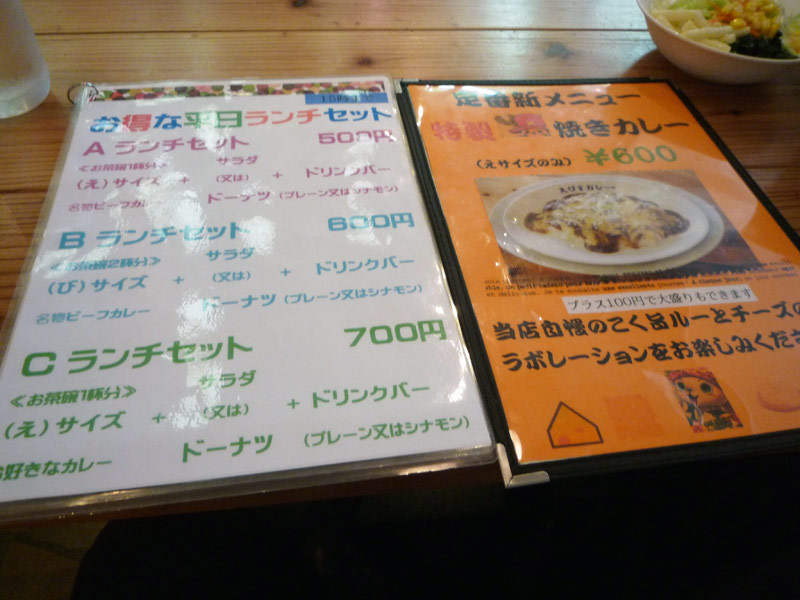 お得な平日ランチセット
A ランチセット 500円
≪お茶碗1杯分≫ サラダ
(え)サイズ + (又は) + ドリンクバー
名物ビーフカレー ドーナツ (プレーン又はシナモン)
B ランチセット 600円
≪お茶碗2杯分≫ サラダ
(び)サイズ + (又は) + ドリンクバー
名物ビーフカレー ドーナツ (プレーン又はシナモン)
C ランチセット 700円
≪お茶碗1杯分≫ サラダ
(え)サイズ + (又は) + ドリンクバー
お好きなカレー ドーナツ (プレーン又はシナモン)
定番新メニュー
特製 焼きカレー
(えサイズのみ) ¥600
プラス100円で大盛りもできます
当店自慢のこく旨ルーとチーズの
ラボレーションをお楽しみくださ